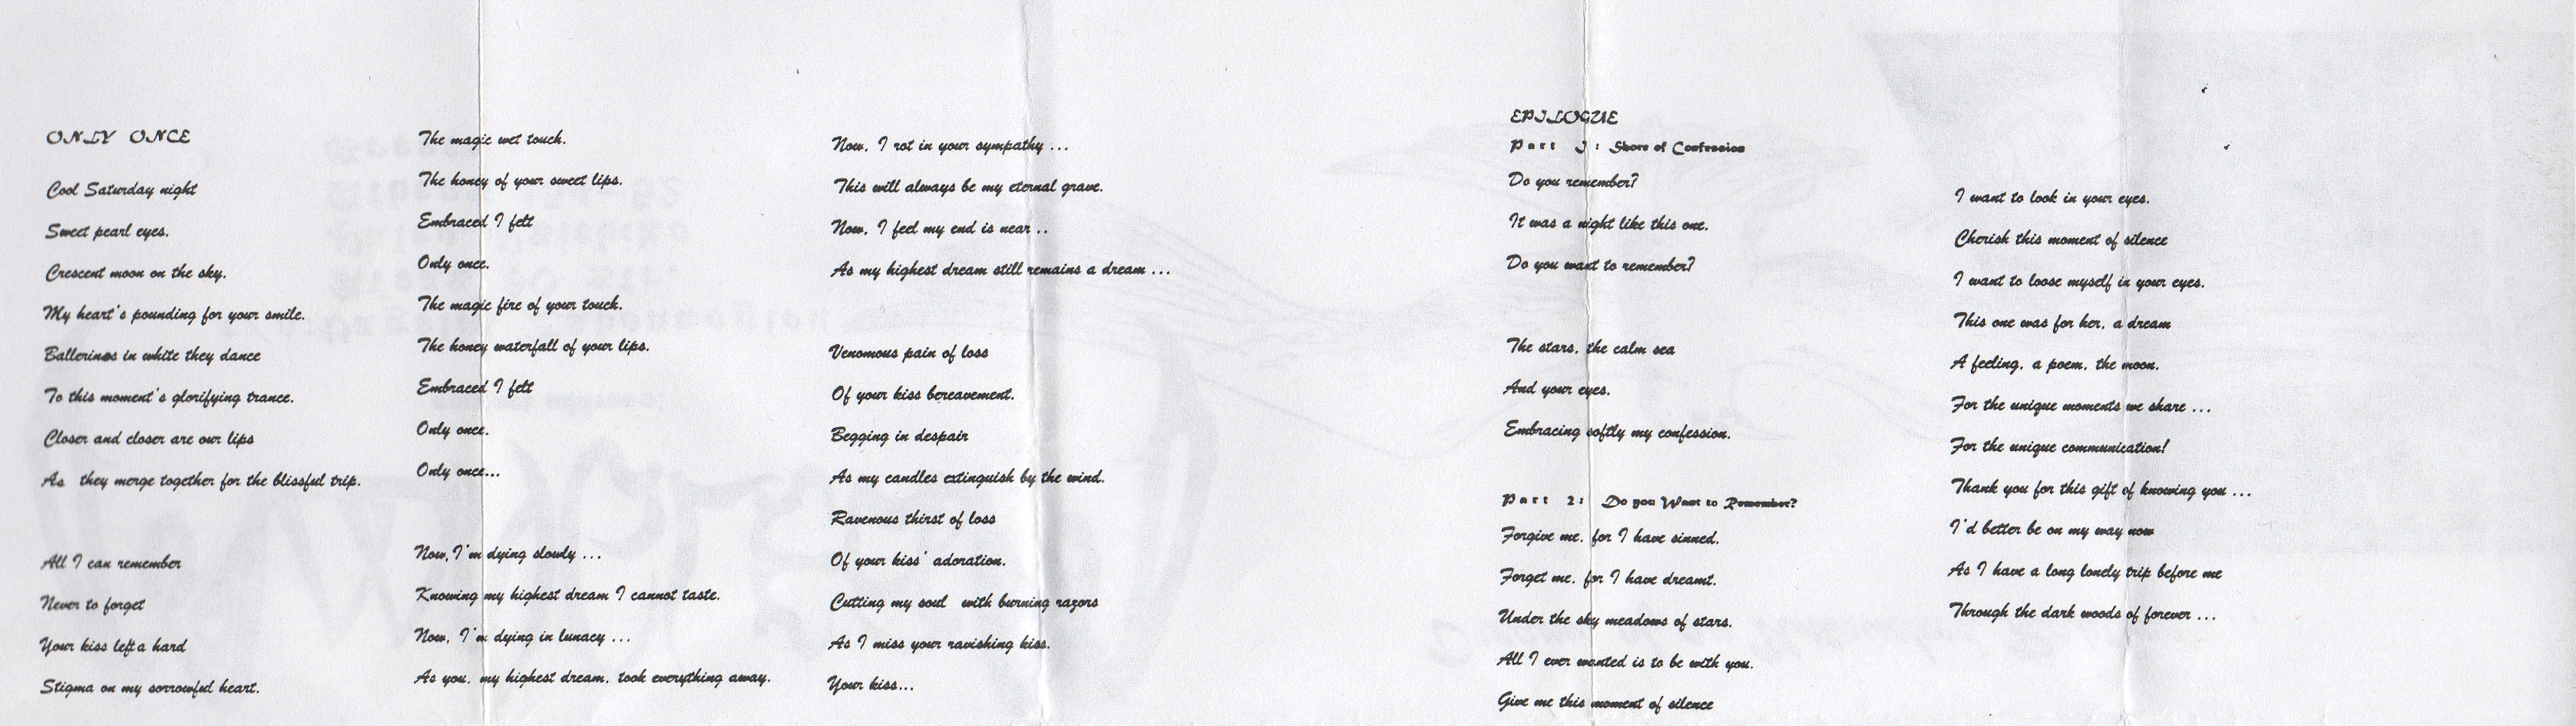 ONLY ONCE
Cool Saturday night
Sweet pearl eyes.
Crescent moon on the sky.
My heart's pounding for your smile.
Ballerinas in white they dance
To this moment's glorifying trance.
Closer and closer are our lips
As they merge together for the blissful trip.
All I can remember
Never to forget
Your kiss left a hard
Stigma on my sorrowful heart.
The magic wet touch.
The honey of your sweet lips.
Embraced I felt
Only once.
The magic fire of your touch.
The honey waterfall of your lips.
Embraced I felt
Only once.
Only once...
Now, I'm dying slowly ...
Knowing my highest dream I cannot taste.
Now, I'm dying in lunacy ...
As you, my highest dream, took everything away.
Now, I rot in your sympathy ...
This will always be my eternal grave.
Now, I feel my end is near ..
As my highest dream still remains a dream ...
Venomous pain of loss
Of your kiss bereavement.
Begging in despair
As my candles extinguish by the wind.
Ravenous thirst of loss
Of your kiss' adoration.
Cutting my soul with burning razors
As I miss your ravishing kiss.
Your kiss...
EPILOGUE
Part I: Shore of Confession
Do you remember?
It was a night like this one.
Do you want to remember?
The stars, the calm sea
And your eyes.
Embracing softly my confession.
Part 2: Do you Want to Remember?
Forgive me, for I have sinned.
Forget me, for I have dreamt.
Under the sky meadows of stars.
All I ever wanted is to be with you.
Give me this moment of silence
I want to look in your eyes.
Cherish this moment of silence
I want to loose myself in your eyes.
This one was for her, a dream
A feeling, a poem, the moon.
For the unique moments we share ...
For the unique communication!
Thank you for this gift of knowing you ...
I'd better be on my way now
As I have a long lonely trip before me
Through the dark woods of forever ...